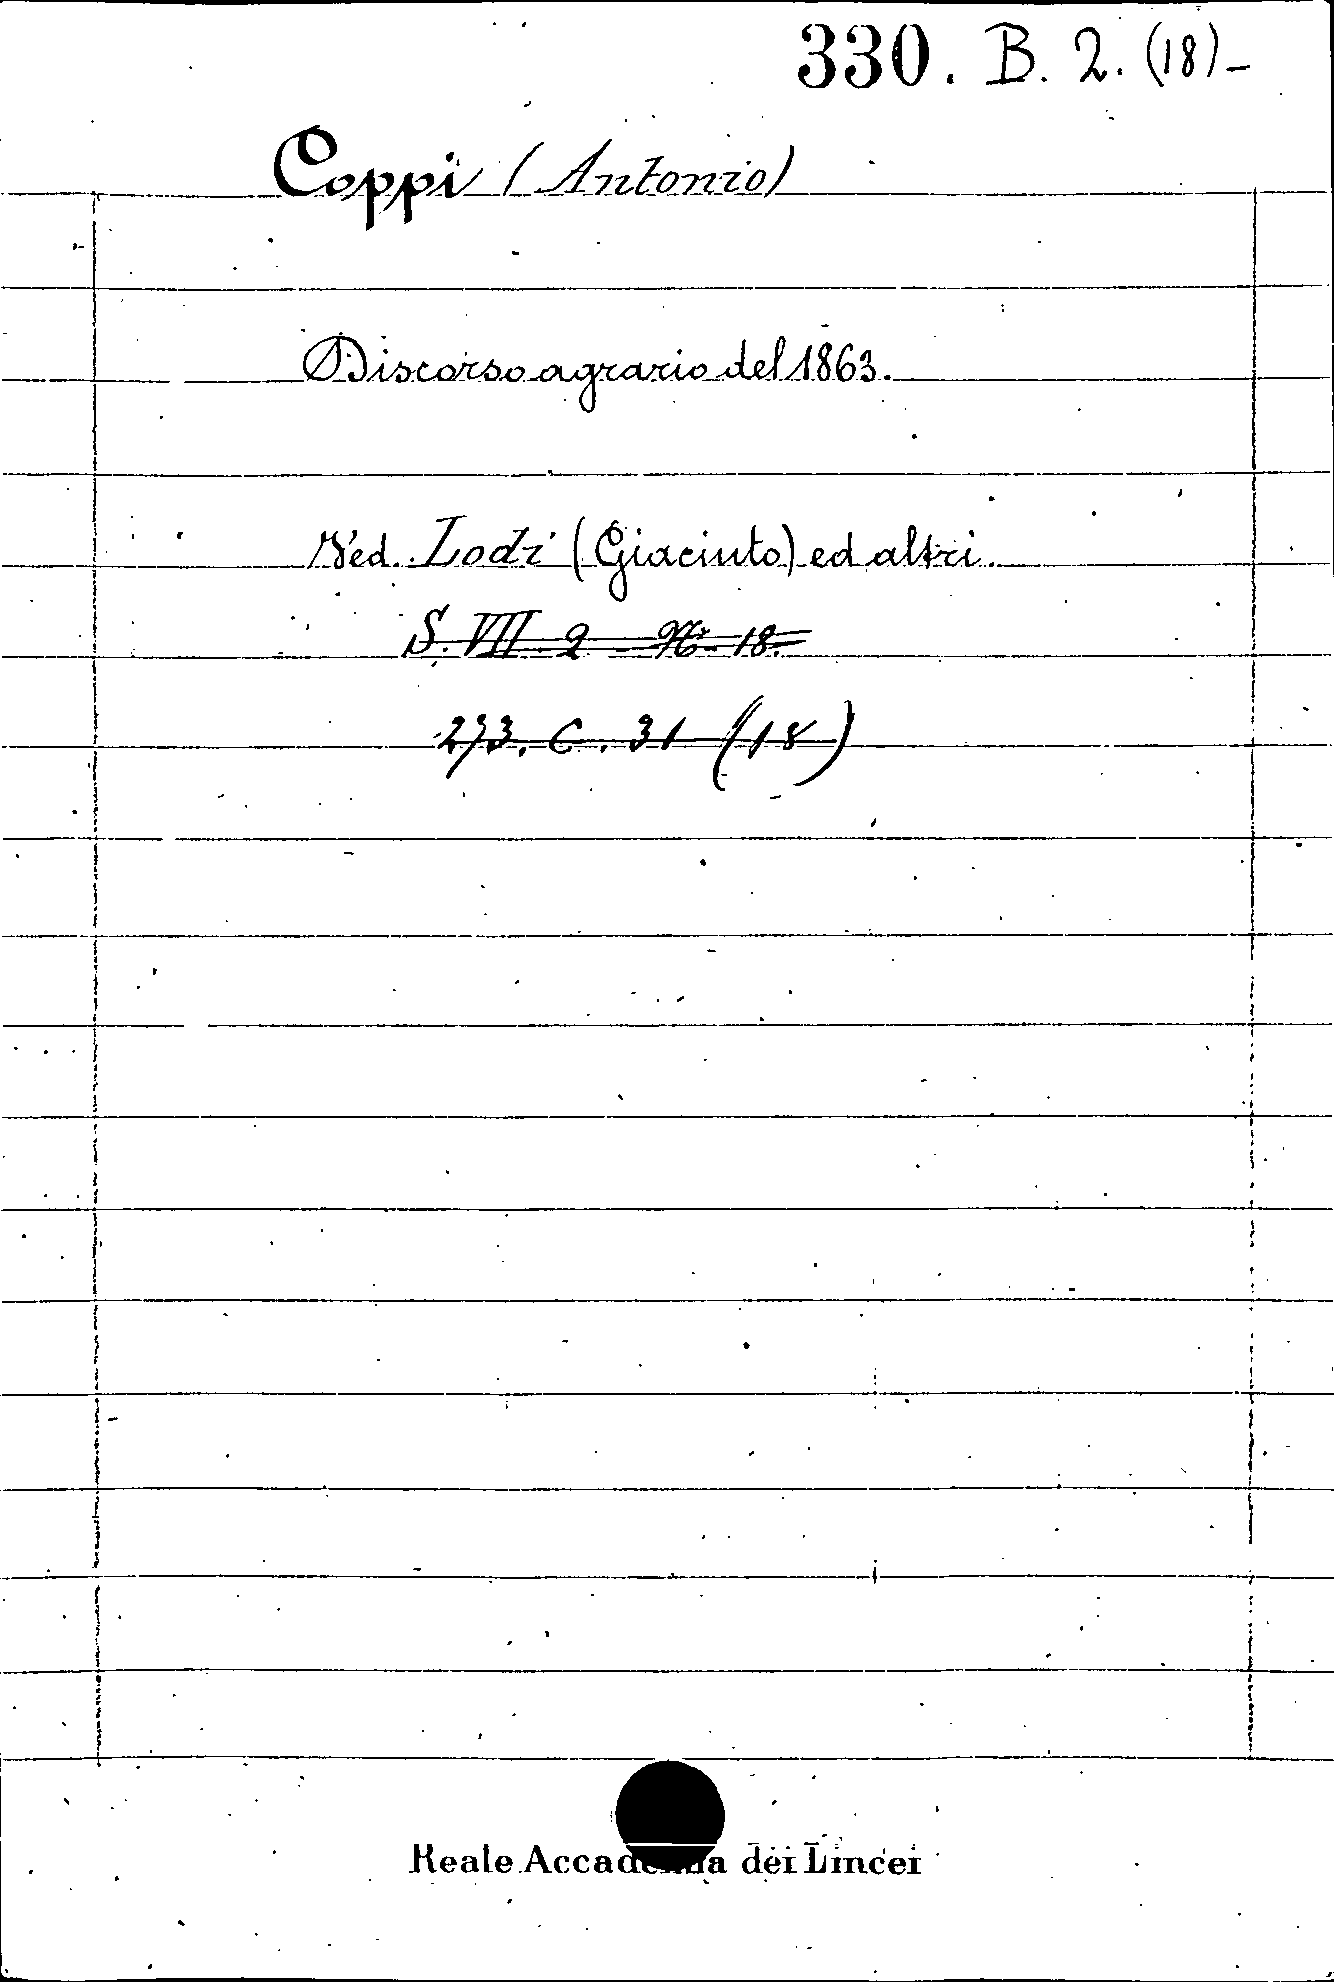 330. B. 2. (18)-
Coppi (Antonio)
Discorso agrario del 1863.
Ved. Lodi (Giacinto) ed altri.
S. VII. 2 N. 18.
273. C. 31 (18)
Reale Accademia dei Lincei